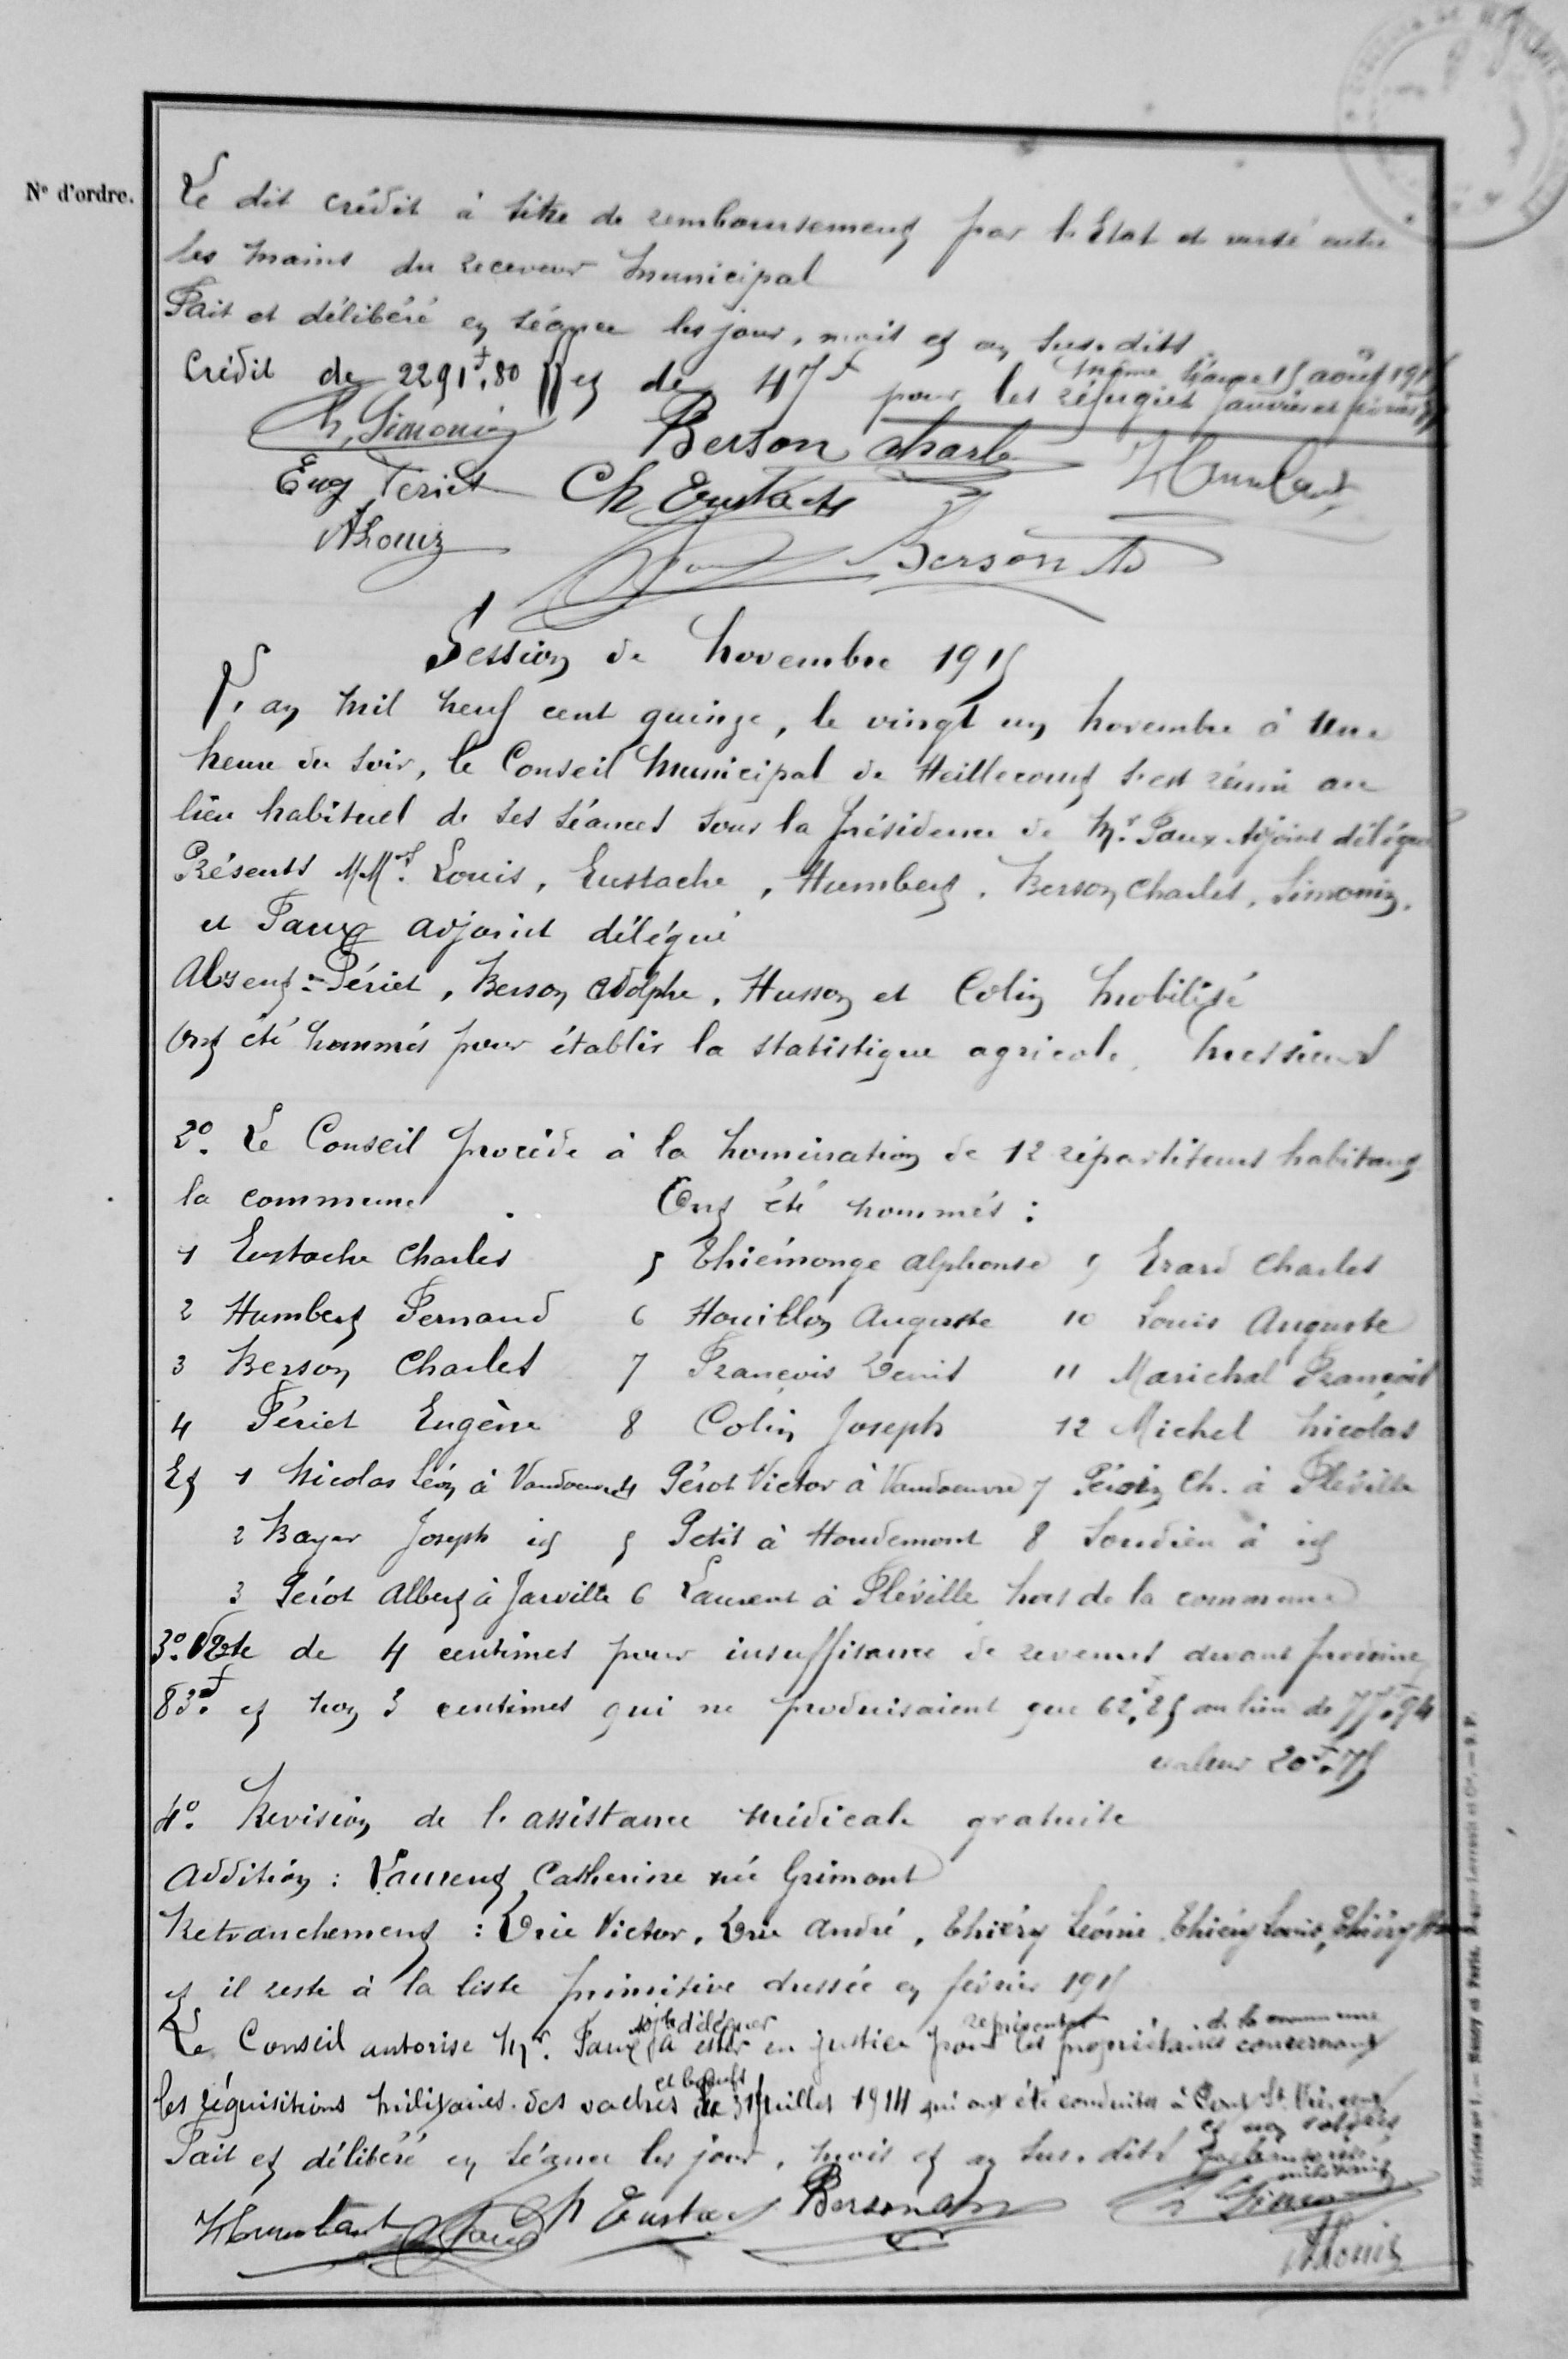 N° d'ordre.
Le dit crédit à titre de remboursement par l'Etat et versé entre
les mains du receveur municipal
Fait et délibéré en séance les jour, mois et an sus. dits
même séance 15 août 1915
Crédit de 2291f,80 et de 47f pour les réfugiés janvier et février
Ch. Simonin Berson Charles
Eug Fériet Ch Eustache FHumbert
ALouis
Faux Berson A
Session de Novembre 1915
L'an mil neuf cent quinze, le vingt un novembre à une
heure du soir, le Conseil municipal de Heillecourt s'est réuni au
lieu habituel de ses séances sous la présidence de Mr. Faux Adjoint délégué
Présents MMrs. Louis, Eustache, Humbert, Berson Charles, Simonin,
et Faux adjoint délégué
Absent : Fériet, Berson Adolphe, Husson et Colin mobilisé
Ont été nommés pour établir la statistique agricole, messieurs
2° Le Conseil procède à la nomination de 12 répartiteurs habitant
la commune. Ont été nommés :
1 Eustache Charles 5 Thiémonge Alphonse 9 Erard Charles
2 Humbert Fernand 6 Houillon Auguste 10 Louis Auguste
3 Berson Charles 7 François Denis 11 Marichal François
4 Fériet Eugène 8 Colin Joseph 12 Michel Nicolas
Et 1 Nicolas Léon à Vandoeuvre 4 Pérot Victor à Vandoeuvre 7 Ch. à Fléville
2 Bayer Joseph id 5 Petit à Houdemont 8 Soudieu à id
3 Pérot Albert à Jarville 6 Laurent à Fléville hors de la commune
3° Vote de 4 centimes pour insuffisance de revenus devant produire
83f. et non 3 centimes qui ne produisaient que 62f,25 au lieu de 77f,94
valeur 20f.75
4° Revision de l'assistance médicale gratuite
Addition : Laurent Catherine née Grimont
Retranchement : Drie Victor, Drie André, Thiéry Léonie, Thiéry Louis, Thiéry
et il reste à la liste primitive dressée en février 1915
adjt délégué représenter de la commune
Le Conseil autorise Mr. Faux à ester en justice pour les propriétaires concernant
et boeufs
les réquisitions militaires des vaches du 31 juillet 1914 qui ont été conduites à Pont St. Vincent
et non soldées
Fait et délibéré en séance les jour, mois et an sus. dits par l'autorité
militaire
FHumbert Faux Ch Eustache Berson Ch Ch Simonin
ALouis